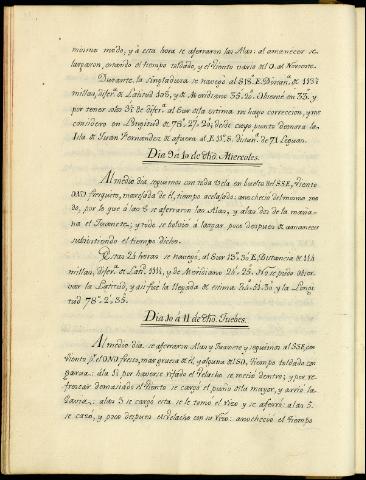 mismo modo, y á esta hora se aferraron las Alas: al amanecer se
largaron, estando el tiempo toldado, y el Viento vario del O. al Noroeste.
Durante la singladura se navegó al S 18º E. Distanª de 113½
millas, diferª de Latitud 108, y de Meridiano 35.2. Observé en 35º, y
por tener solo 3½ de diferª al Sur de la estima no hago correccion, y me
considero en Longitud de 78º.27.24, desde cuyo punto demora la
Isla de Juan Fernandez de afuera al E 11º S. distanª de 71 Leguas.
Dia 9 á 10 de dho. Miercoles.
Al medio dia seguimos con toda Vela en buelta del SSE, Viento
ONO fresquito, marejada de él, tiempo acelajado: anocheció del mismo mo-
do, por lo que á las 8 se aferraron las Alas, y alas dos de la maña-
na el Juanete; y todo se bolvió á largar poco despues de amanecer
subsistiendo el tiempo dicho.
Estas 24 horas se navegó al Sur 13º.30 E. Distancia de 114
millas, diferª de Latª 111¼, y de Meridiano 24.25. No se pudo obser-
var la Latitud, y asi fué la llegada de estima 36.51.30 y la Longi-
tud 78º.2.35.
Dia 10 á 11 de dho. Juebes.
Al medio dia, se aferraron Alas y Juanete y seguimos al SSE, con
Viento pr. el ONO fresco, mar gruesa de él, y alguna del SO, Tiempo toldado con
garua: ála 3½ por haverse rifado el Velacho se metió dentro; y por re-
frescar demasiado el Viento se cargó el puño de la mayor, y arrió la
Gavia: alas 5 se cargó esta se le tomó el Rizo y se aferró: alas 5.
se cazó, y poco despues el Velacho con su Rizo: anocheció el Tiempo